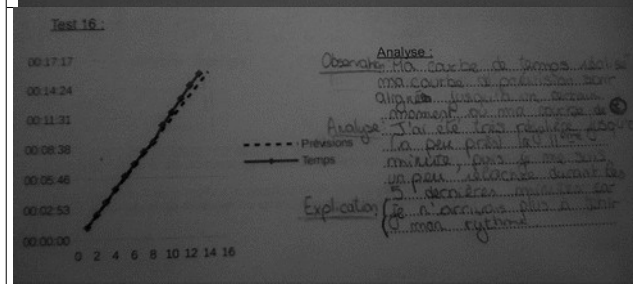 Test 16 :
Analyse :
00:17:17
00:14:24
00:11:31
00:08:38
00:05:46
00:02:53
00:00:00
0 2 4 6 8 10 12 14 16
Prévisions
Temps
Observation Ma courbe de temps réalisé
ma courbe de prévision sont
alignés jusqu'à un certain
moment ou ma courbe de
Analyse J'ai été très régulière jusqu'
la peu près
minute, puis je me suis
un peu relachée durant les
5 dernières minutes car
Explication (Je n'arrivais plus à tenir
mon rythme.